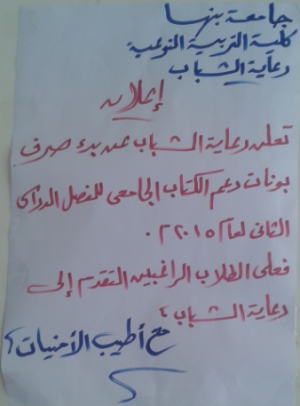 جامعة بنها
كلية التربية النوعية
رعاية الشباب
إعلان
تعلن رعاية الشباب عن بدء صرف
بونات دعم الكتاب الجامعى للفصل الدراسى
الثانى لعام ٢٠١٥ م .
فعلى الطلاب الراغبين التقدم إلى
رعاية الشباب ،
مع أطيب الأمنيات ،